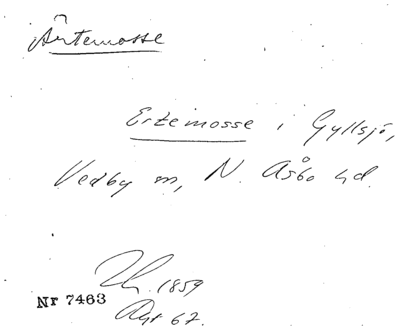 Ärtemosse
Ertemosse i Gyllsjö,
Vedby sn, N. Åsbo hd.
1859
Nr 7463
Akt 67.